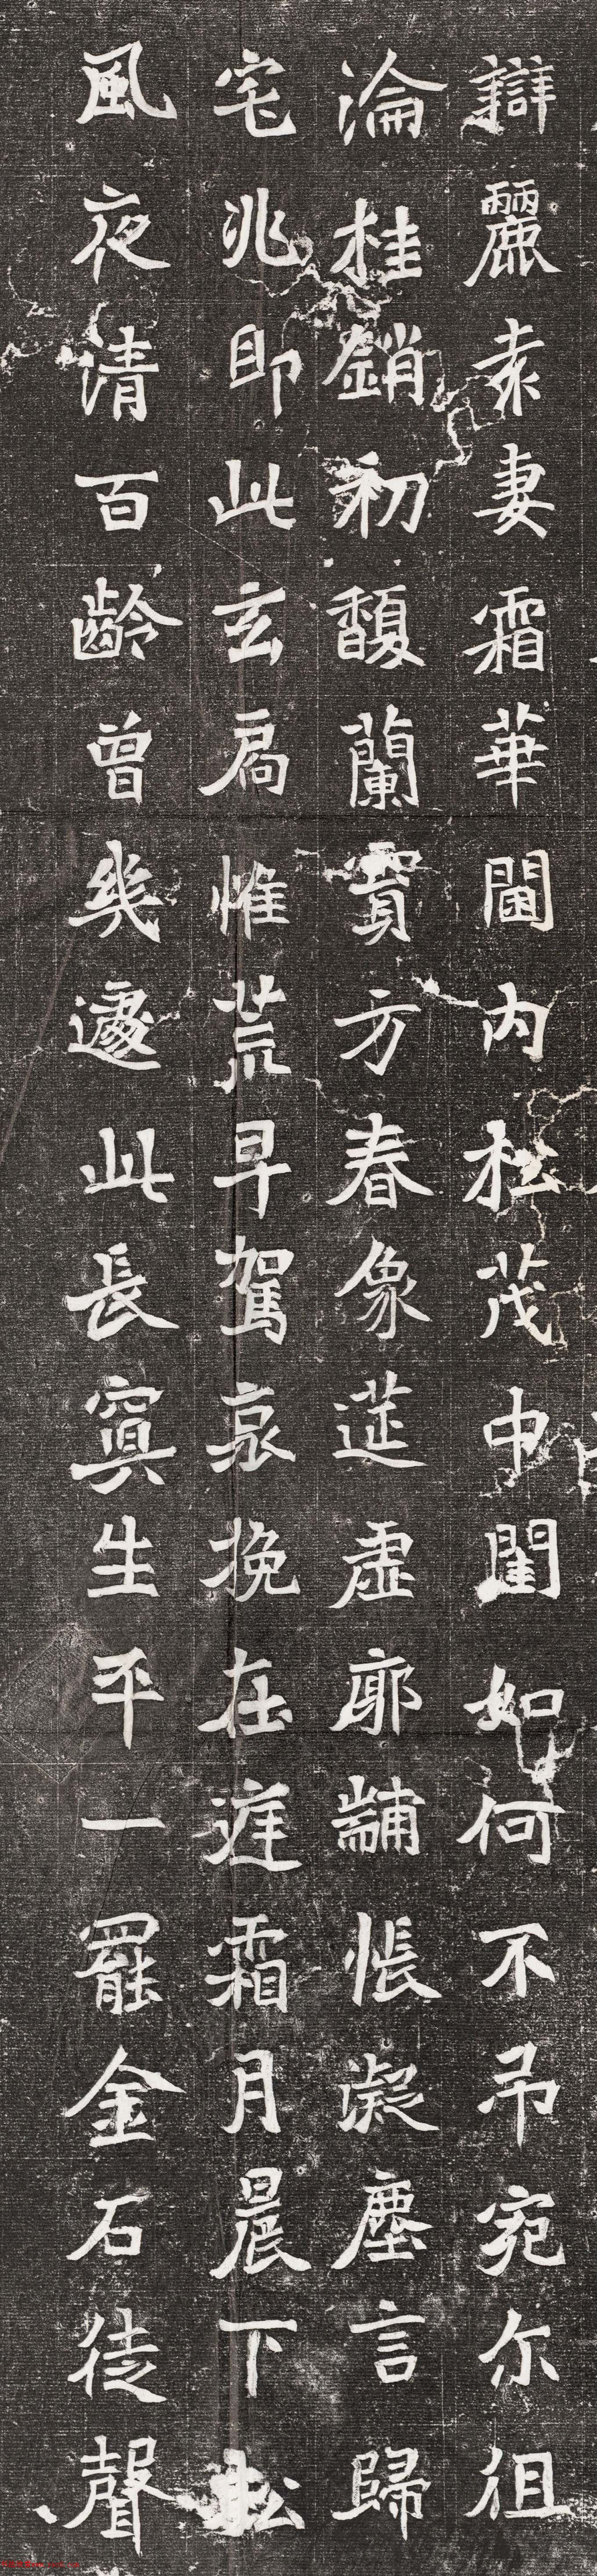 辯麗袁妻霜華閫内松茂中閨如何不吊宛尔徂
淪桂銷初馥蘭霣方春象莚虚廓黼帳凝塵言歸
宅兆即此玄扃惟荒早駕哀挽在庭霜月晨下松
風夜清百齡曾幾遽此長冥生平一罷金石徒聲